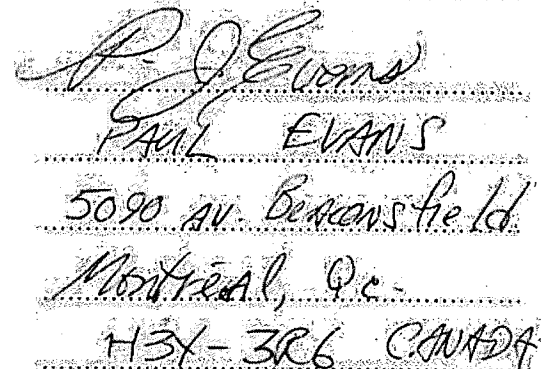 P. J. Evans
PAUL EVANS
5090 AV. Beaconsfield
Montréal, Qc.
H3X-3R6 CANADA